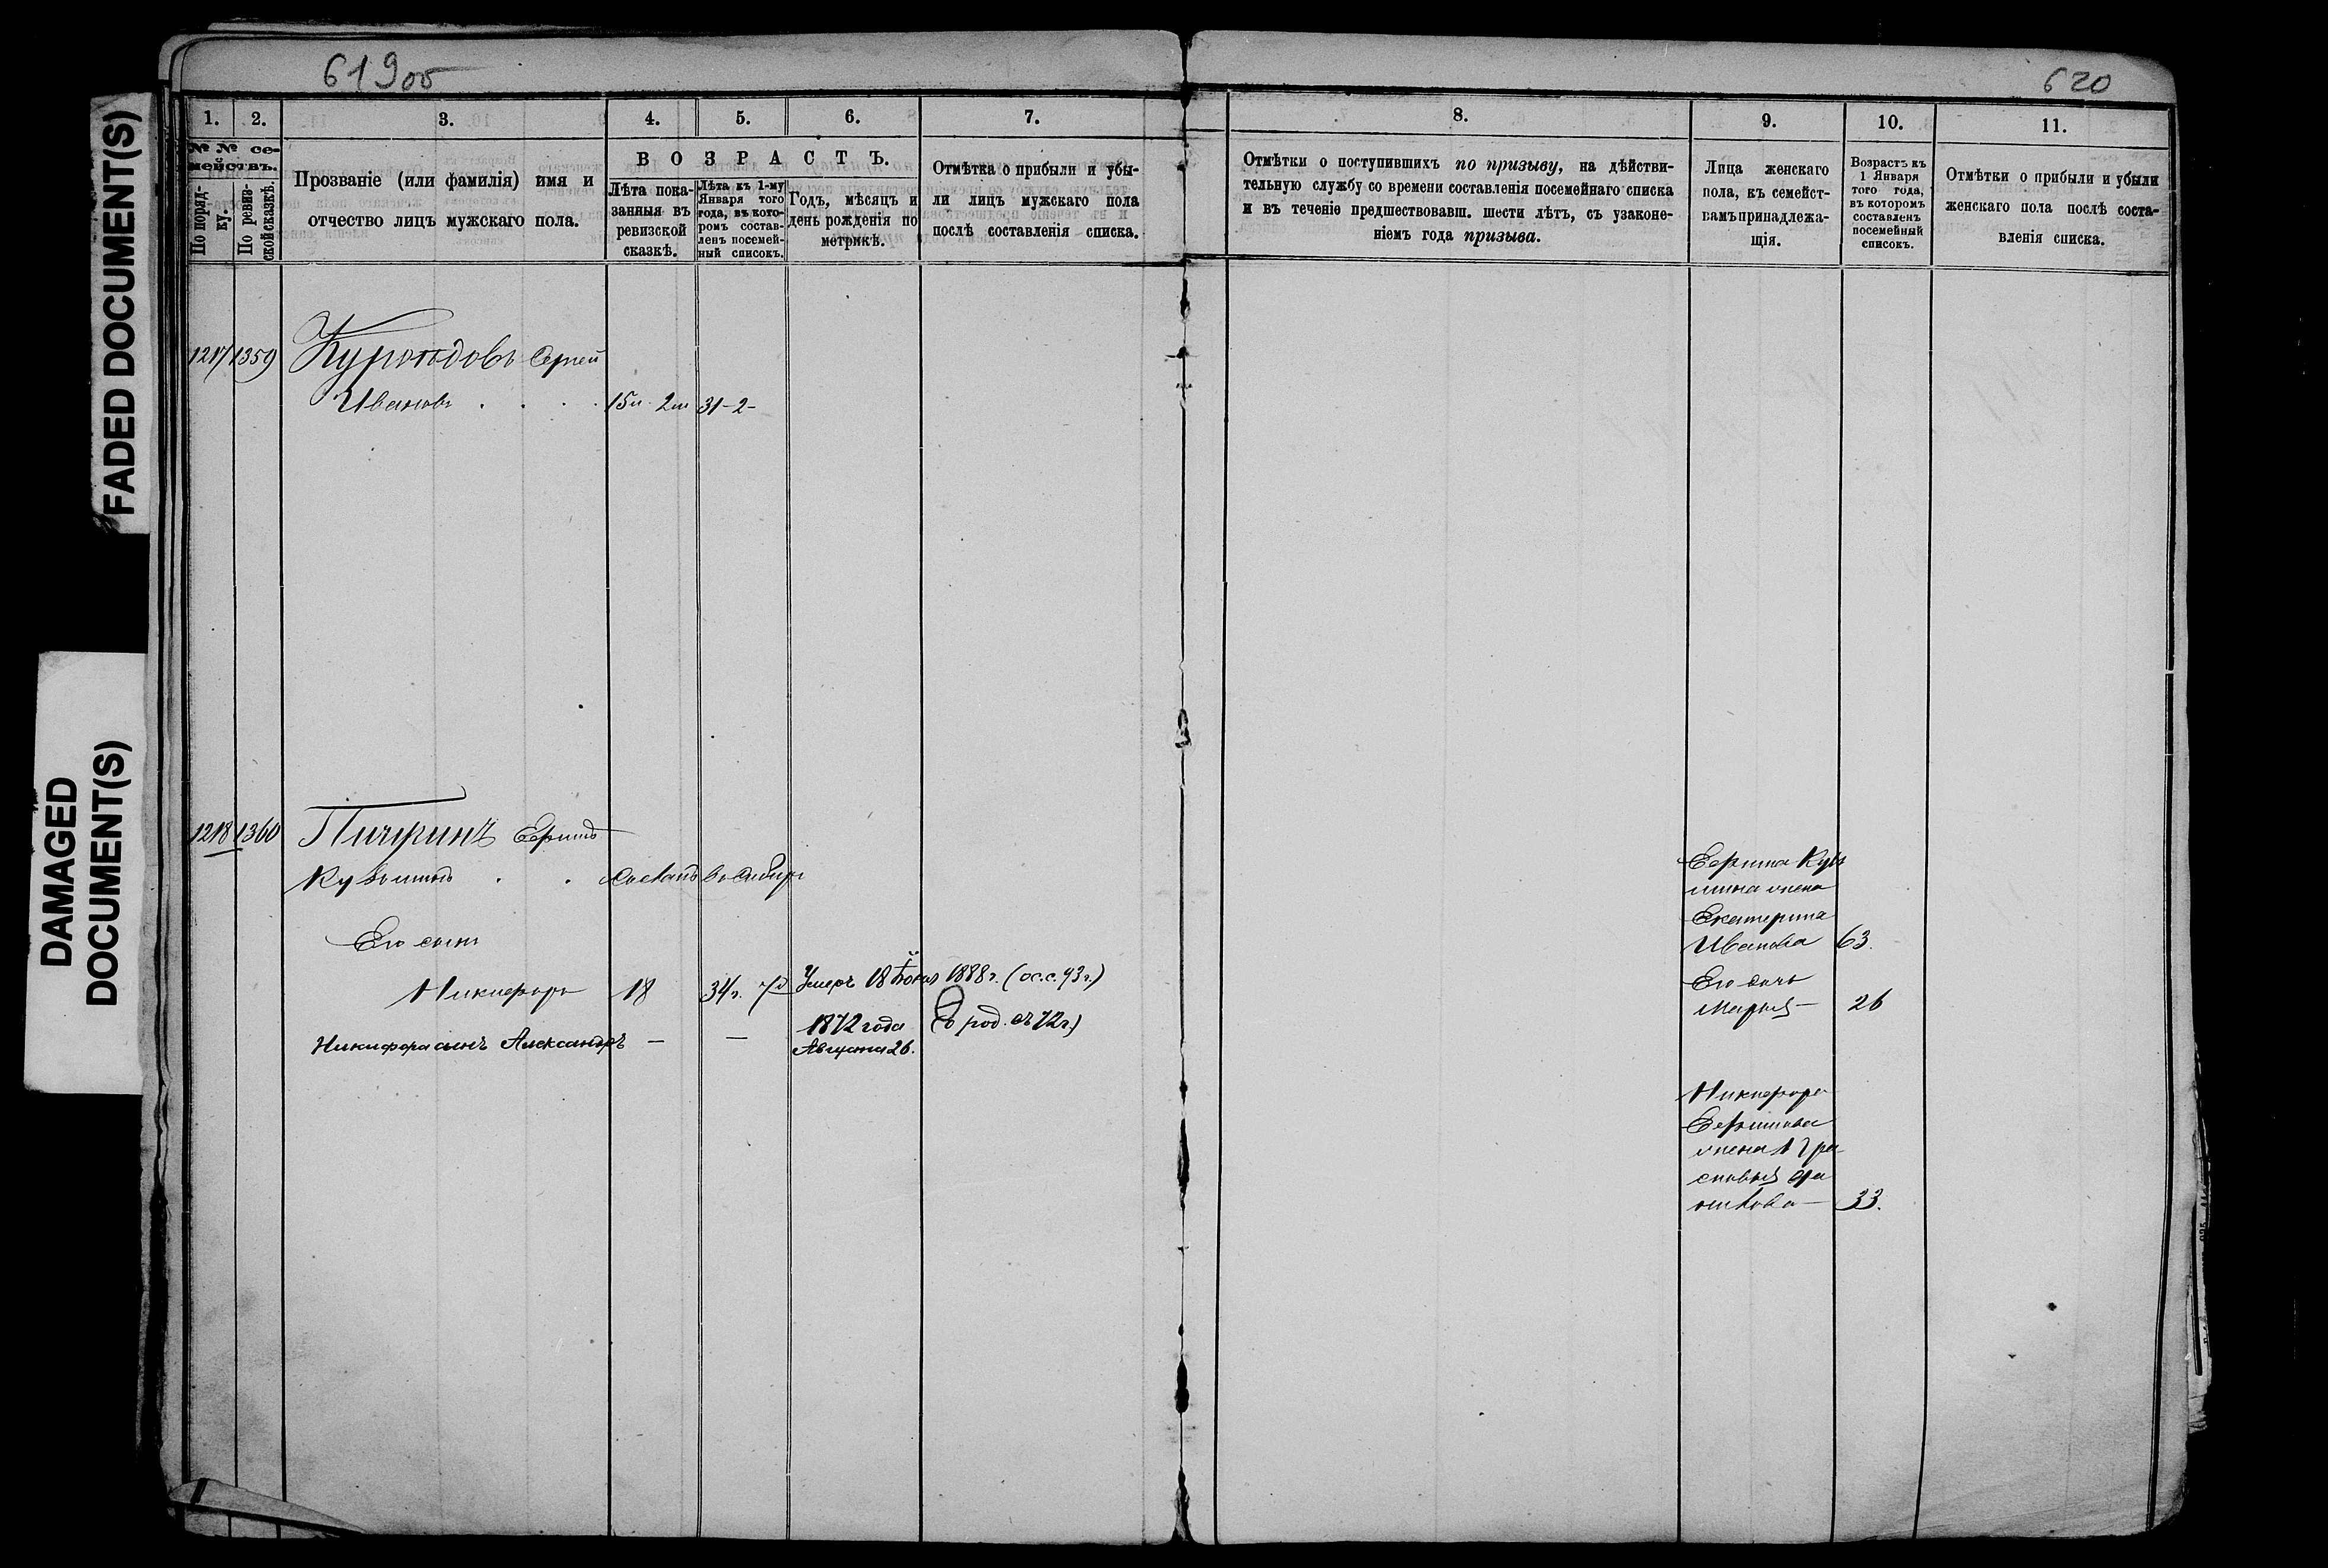 619об
620
FADED DOCUMENT(S)
DAMAGED
DOCUMENT(S)
1. 2. 3. 4. 5. 6. 7.
№ № се-
мействъ.
По поряд-
ку.
По ревиз-
ской сказкѣ.
Прозваніе (или фамилія) имя и
отчество лицъ мужскаго пола.
ВОЗРАСТЪ.
Лѣта пока-
занныя въ
ревизской
сказкѣ.
Лѣта къ 1-му
Января того
года, въ кото-
ромъ состав-
ленъ посемей-
ный списокъ.
Годъ, мѣсяцъ и
день рожденія по
метрикѣ.
Отмѣтка о прибыли и убы-
ли лицъ мужскаго пола
послѣ составленія списка.
8. 9. 10. 11.
Отмѣтки о поступившихъ по призыву, на дѣйстви-
тельную службу со времени составленія посемейнаго списка
и въ теченіе предшествовавш. шести лѣтъ, съ узаконе-
ніемъ года призыва.
Лица женскаго
пола, къ семейст-
вамъ принадлежа-
щія.
Возрастъ къ
1 Января
того года,
въ которомъ
составленъ
посемейный
списокъ.
Отмѣтки о прибыли и убыли
женскаго пола послѣ соста-
вленія списка.
1217 1359 Сергей
Ивановъ 15 2 31-2-
1218 1360 Ефимъ
Кузьминъ Сосланъ въ Сибирь
Его сынъ
Никифоръ 18 34г. Умеръ 18 Іюня 1888г. (43г.)
1872 года род. 72г.)
Никифора сынъ Александръ — — Августа 26.
Ефима Кузь
мина жена
Екатерина
Иванова 63.
Его дочь
Марья — 26
Никифора
Ефимова
жена
33.